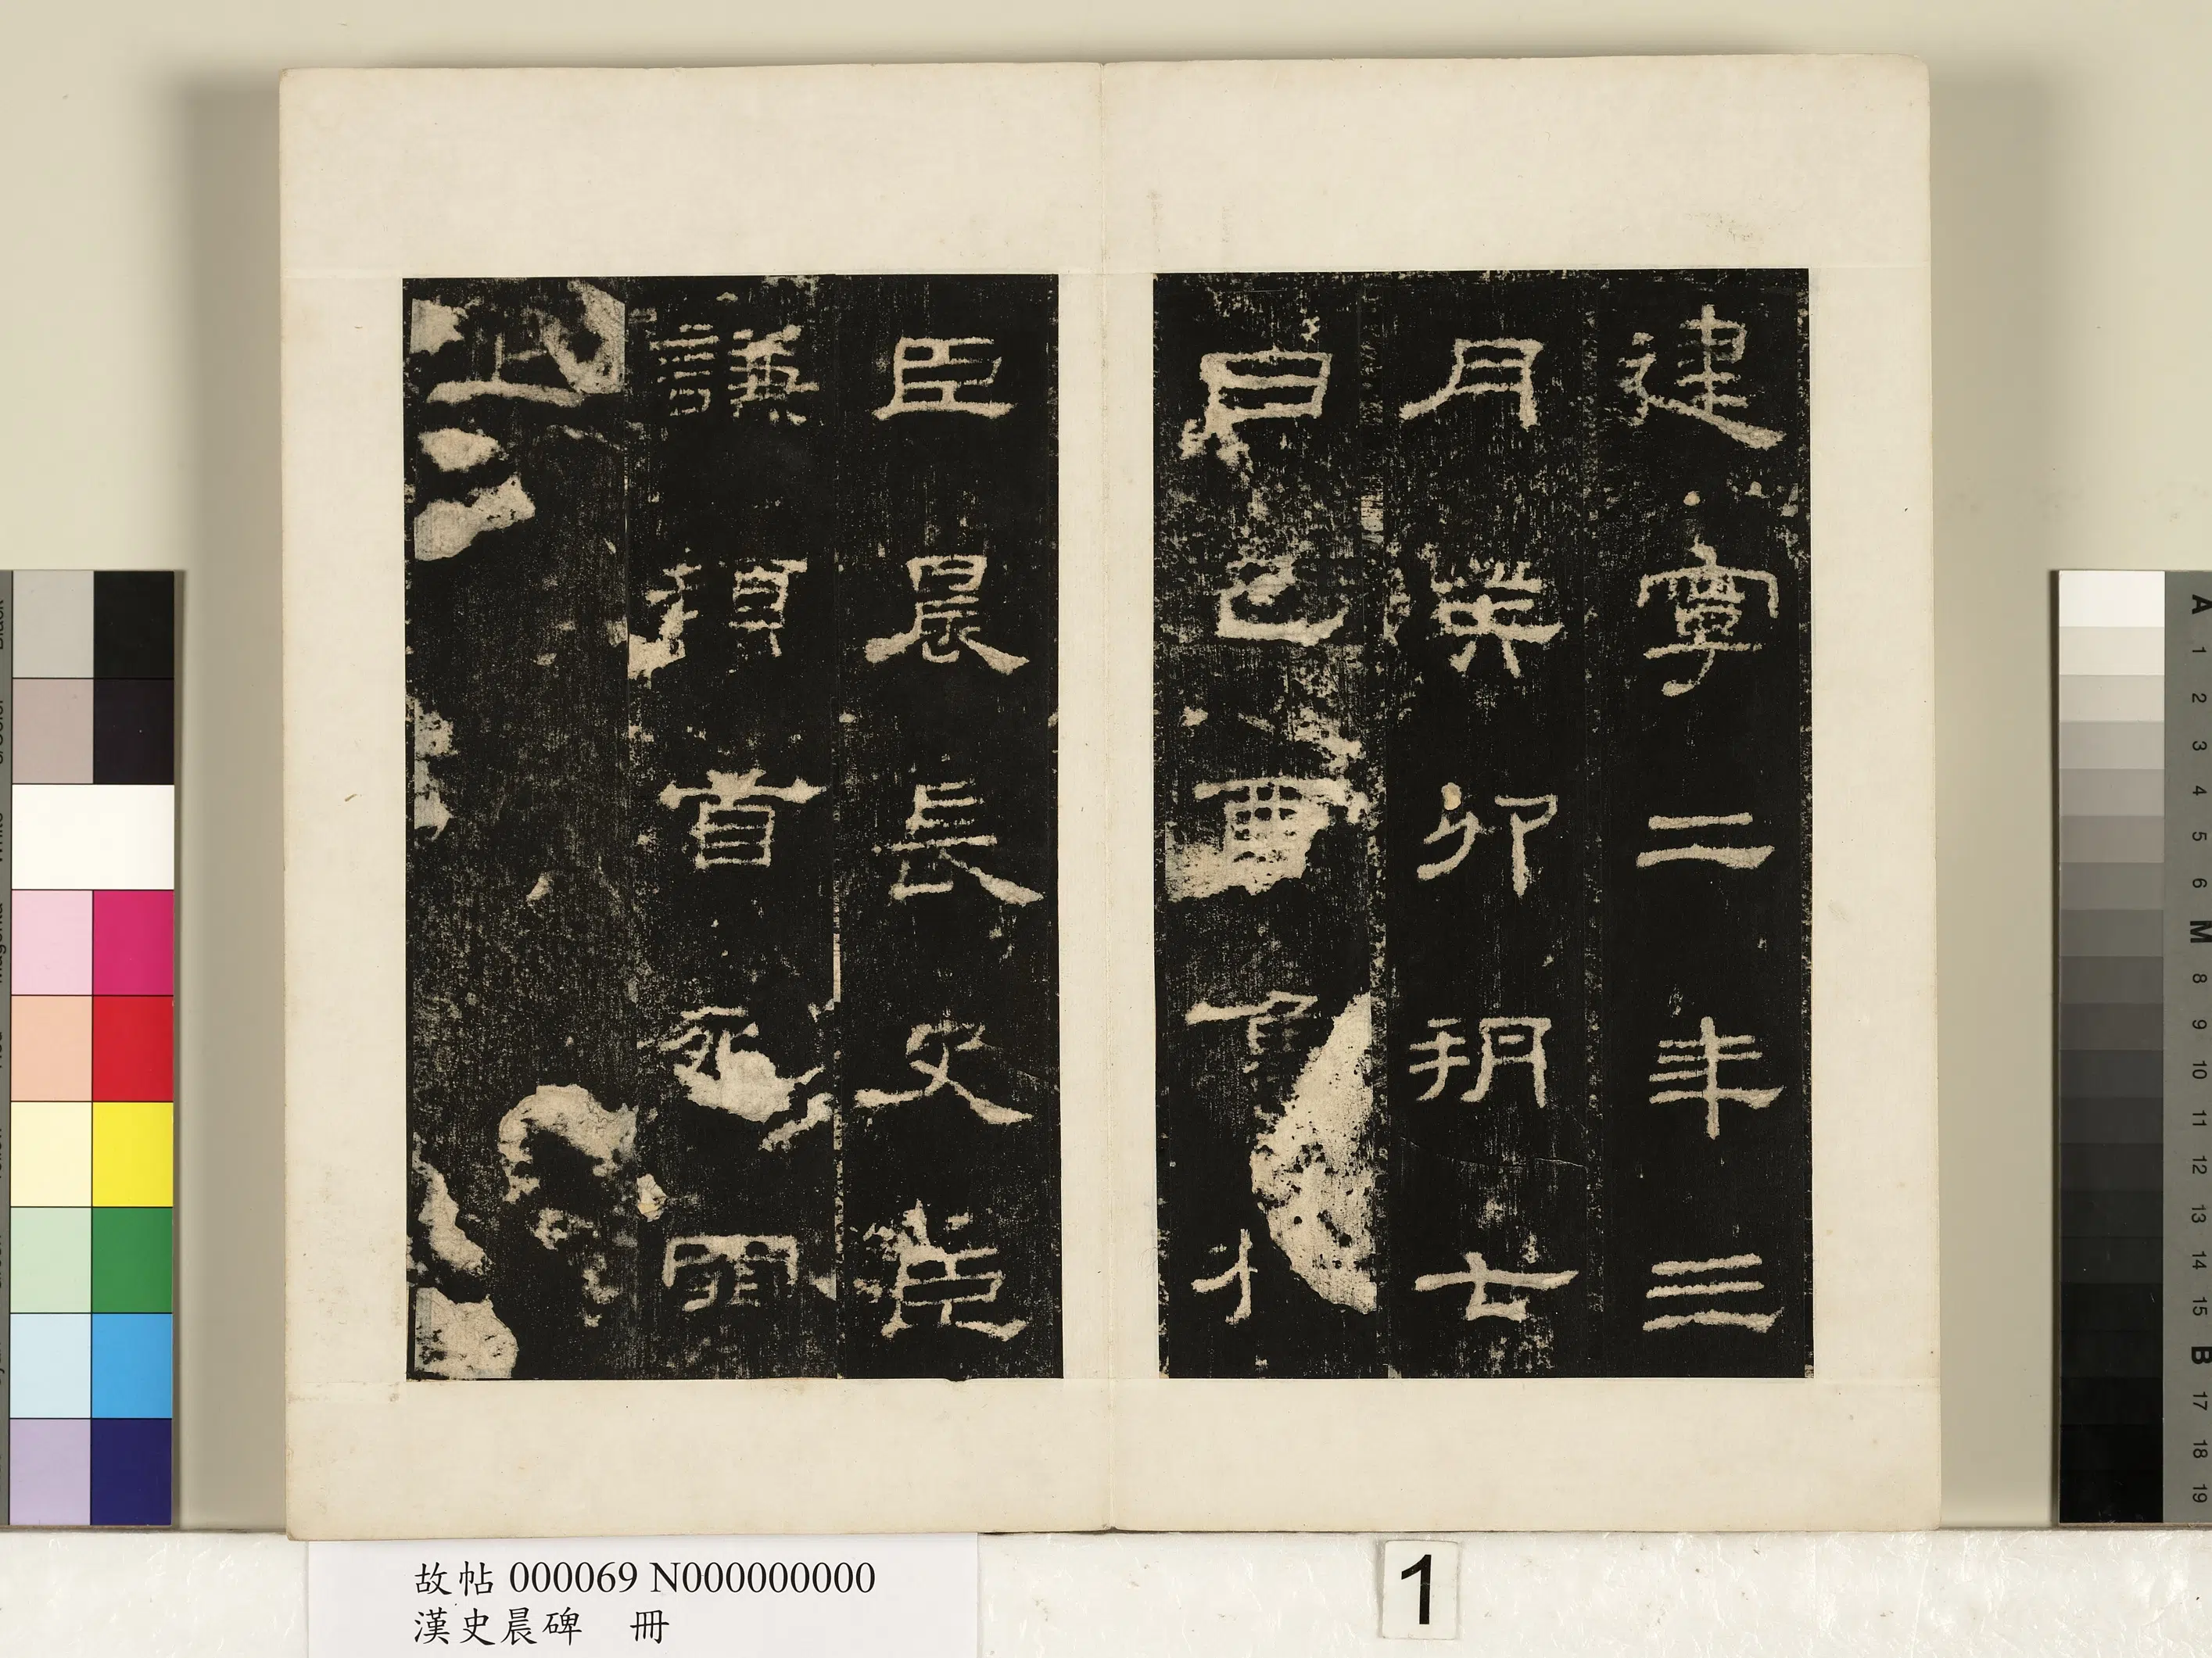 建寧二年三
月癸卯朔七
日己酉魯相
臣晨長史臣
謙頓首死罪
上
故帖 000069 N000000000
漢史晨碑 冊
1
A 1 2 3 4 5 6 M 8 9 10 11 12 13 14 15 B 17 18 19